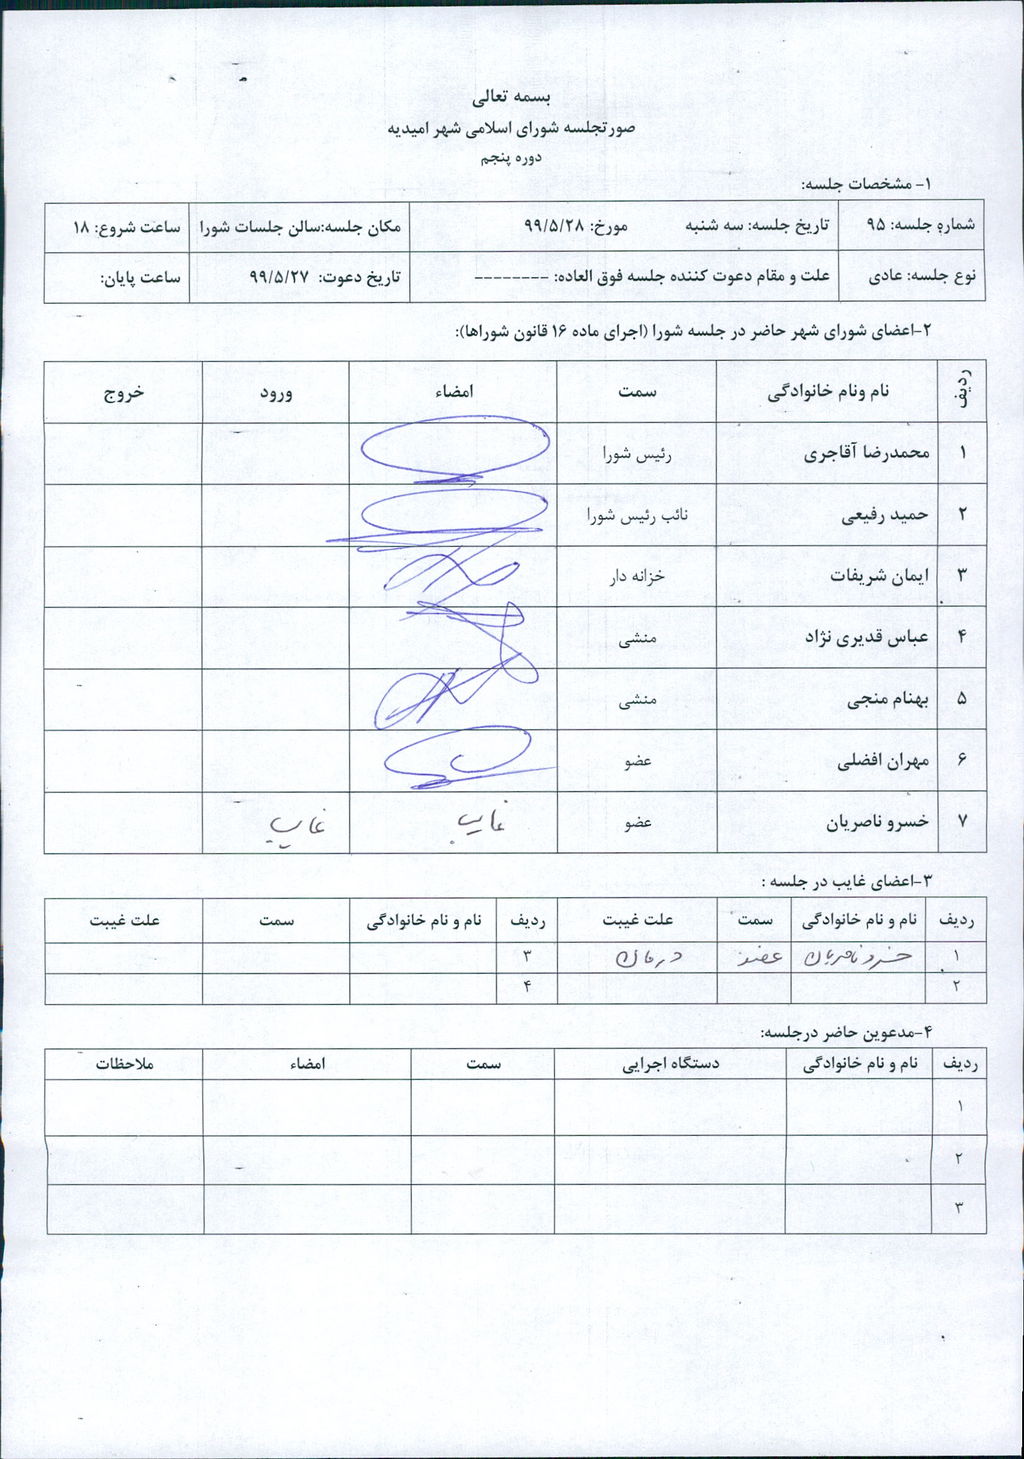 بسمه تعالی
صورتجلسه شورای اسلامی شهر امیدیه
دوره پنجم
۱- مشخصات جلسه:
شماره جلسه: ۹۵ تاریخ جلسه: سه شنبه مورخ: ۹۹/۵/۲۸ مکان جلسه:سالن جلسات شورا ساعت شروع: ۱۸
نوع جلسه: عادی علت و مقام دعوت کننده جلسه فوق العاده: -------- تاریخ دعوت: ۹۹/۵/۲۷ ساعت پایان:
۲-اعضای شورای شهر حاضر در جلسه شورا (اجرای ماده ۱۶ قانون شوراها):
ردیف نام ونام خانوادگی سمت امضاء ورود خروج
۱ محمدرضا آقاجری رئیس شورا
۲ حمید رفیعی نائب رئیس شورا
۳ ایمان شریفات خزانه دار
۴ عباس قدیری نژاد منشی
۵ بهنام منجی منشی
۶ مهران افضلی عضو
۷ خسرو ناصریان عضو غایب غایب
۳-اعضای غایب در جلسه :
ردیف نام و نام خانوادگی سمت علت غیبت ردیف نام و نام خانوادگی سمت علت غیبت
۱ خسرو ناصریان عضو درمان ۳
۲ ۴
۴-مدعوین حاضر درجلسه:
ردیف نام و نام خانوادگی دستگاه اجرایی سمت امضاء ملاحظات
۱
۲
۳